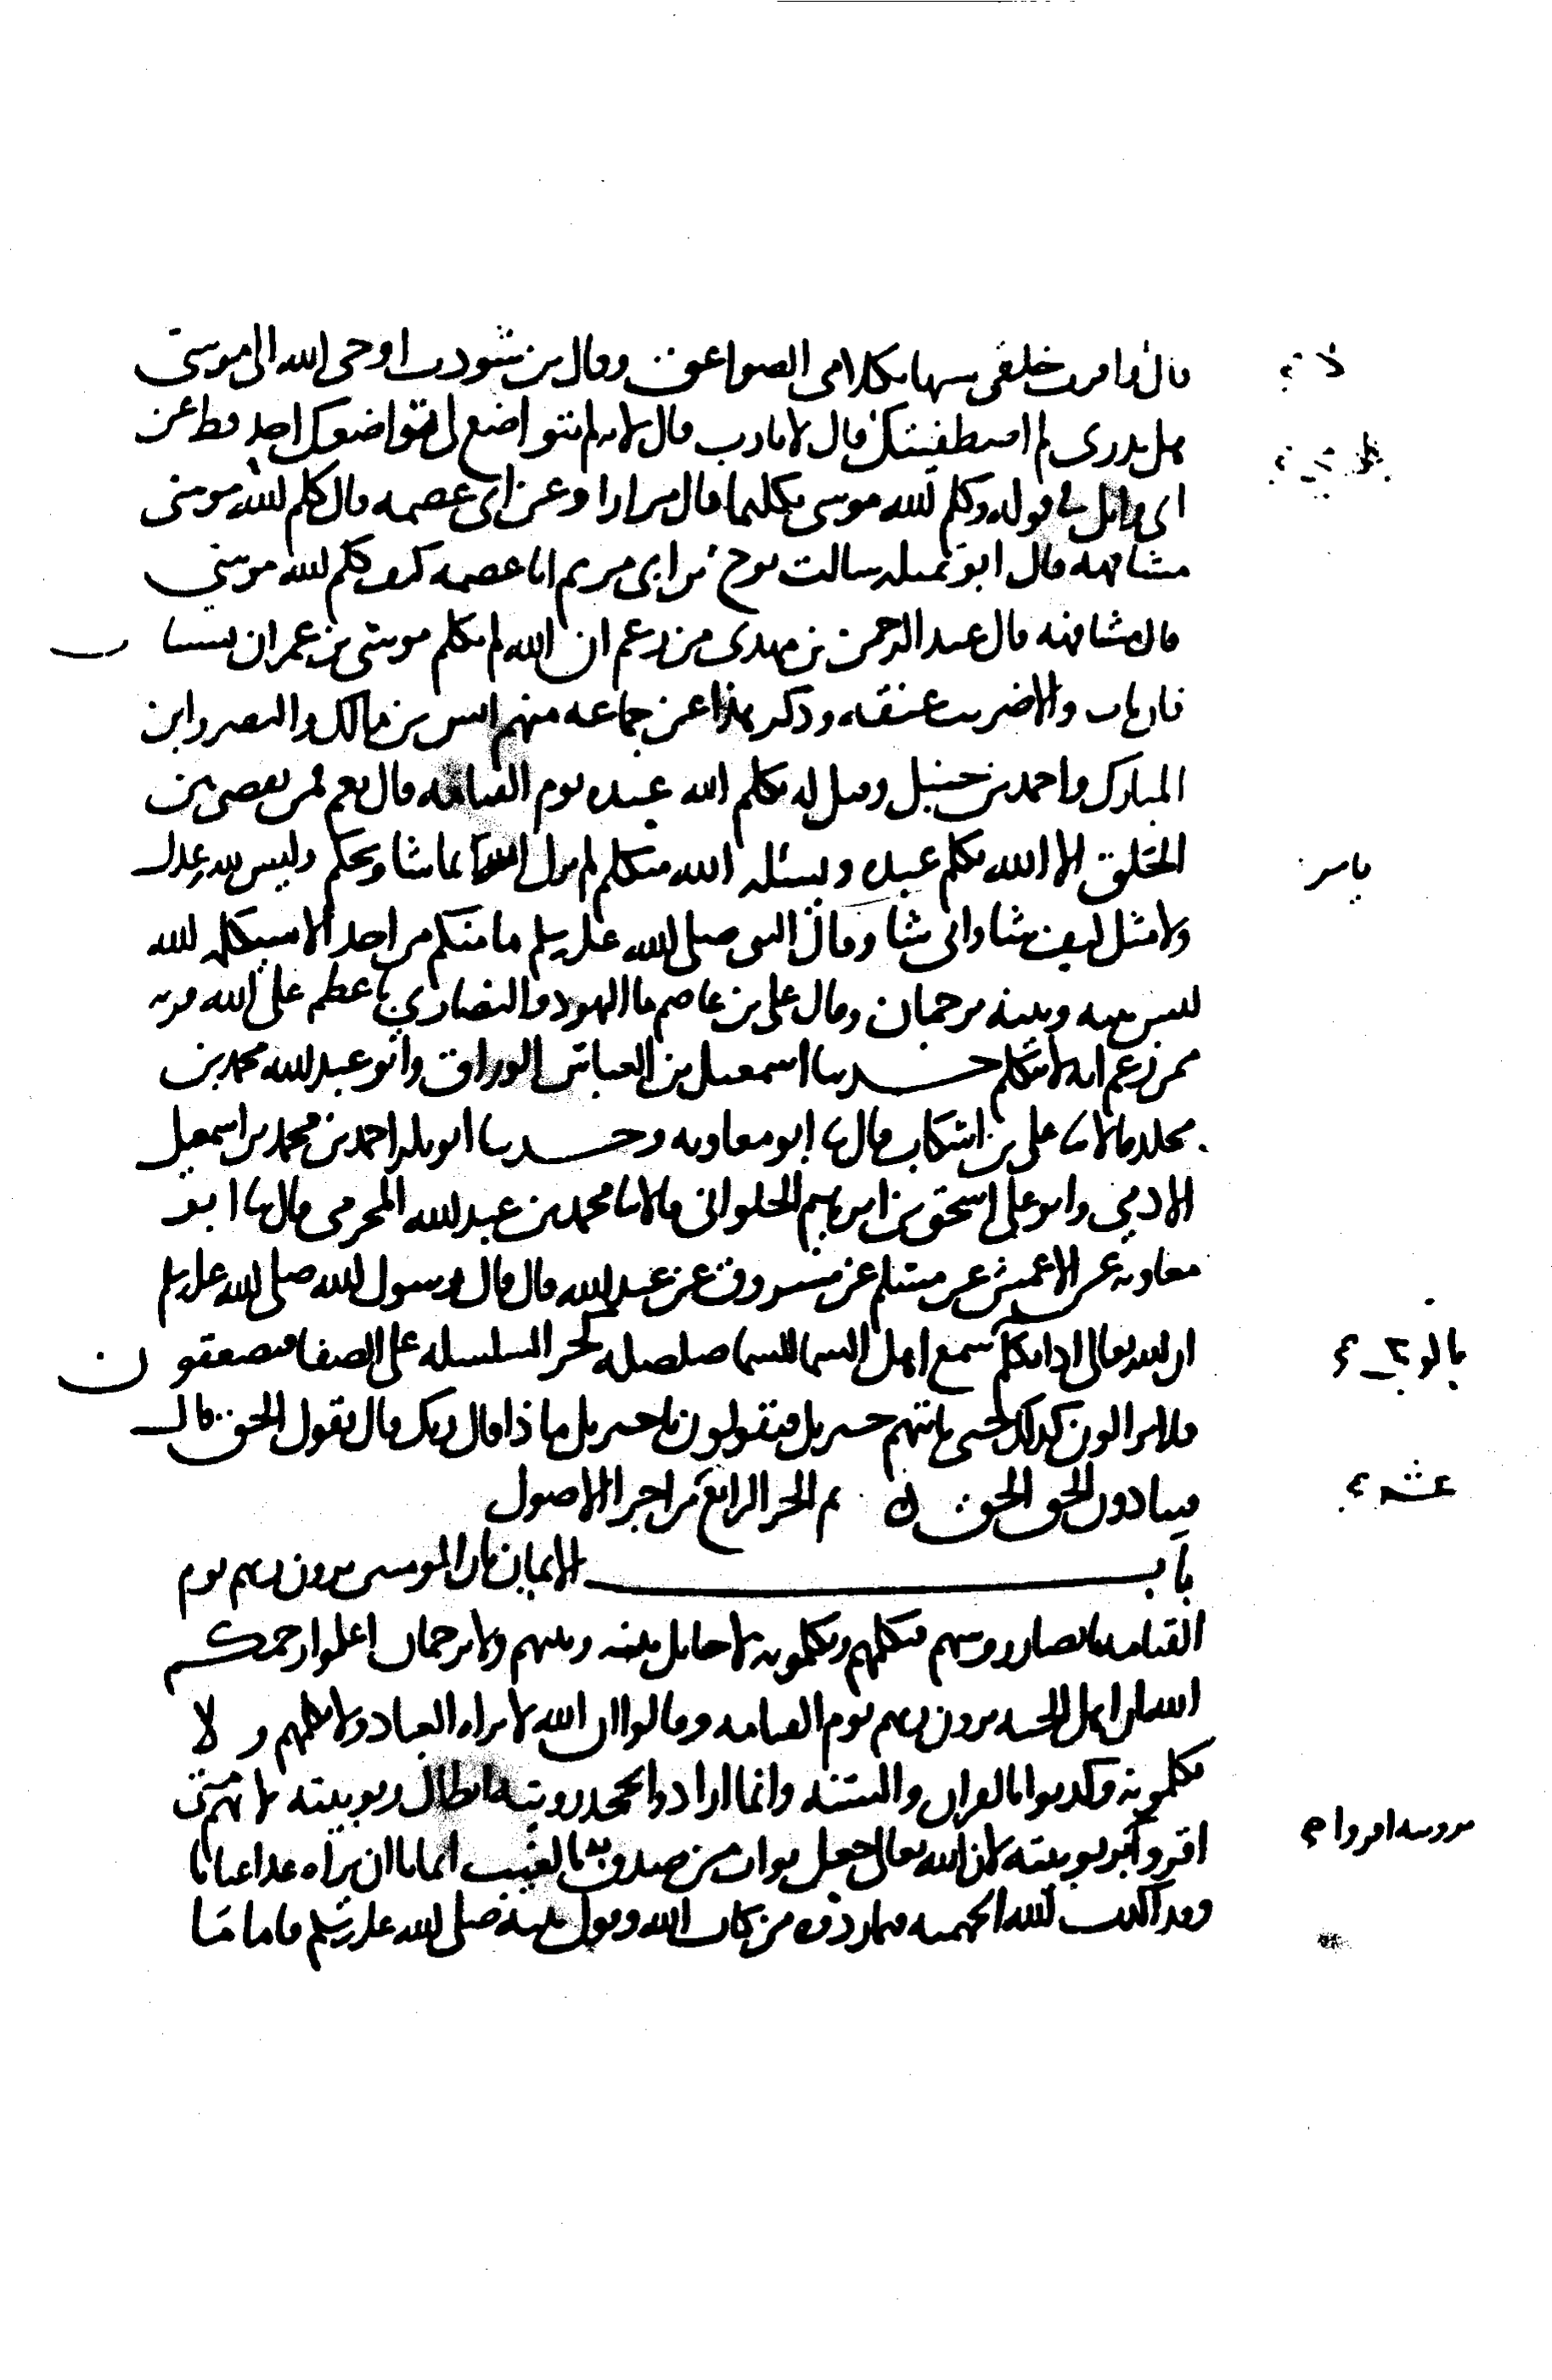 قال فما امرت خلقي بكلامي الصواعق وقال بن شوذب اوحى الله الى موسى
هل تدري لم اصطفيتك قال لا يا رب قال لانه لم يتواضع لي تواضعك احد قط عن
ابي وايل في قوله وكلم الله موسى تكليما قال مرارا وعن ابي عصمه قال كلم الله موسى
مشافهه قال ابو تميله سالت نوح بن ابي مريم ابا عصمه كيف كلم الله موسى
قال مشافهه قال عبد الرحمن بن مهدي من زعم ان الله لم يكلم موسى بن عمران يستتاب
فان تاب والا ضربت عنقه وذكر هذا عن جماعه منهم انس بن مالك والنضر وابن
المبارك واحمد بن حنبل وقيل له يكلم الله عبده يوم القيامه قال نعم فمن يقضي بين
الخلق الا الله يكلم عبده ويسئله الله متكلم لم يزل الله يامر بما شا ويحكم وليس لله عدل
ولا مثل كيف شا وانى شا وقال النبي صلى الله عليه وسلم ما منكم من احد الا سيكلمه الله
ليس بينه وبينه ترجمان وقال علي بن عاصم ما اليهود والنصارى باعظم على الله فريه
ممن زعم انه لا يتكلم حدثنا اسمعيل بن العباس الوراق وابو عبد الله محمد بن
مخلد قالا نا علي بن اشكاب قال نا ابو معاويه وحدثنا ابو بكر احمد بن محمد بن اسمعيل
الادمي وابو علي اسحق بن ابراهيم الحلواني قالا نا محمد بن عبد الله المخرمي قال نا ابو
معاويه عن الاعمش عن مسلم عن مسروق عن عبد الله قال قال رسول الله صلى الله عليه وسلم
ان الله تعالى اذا تكلم سمع اهل السما للسما صلصله كجر السلسله على الصفا فيصعقون
فلا يزالون كذلك حتى ياتيهم جبريل فيقولون يا جبريل ماذا قال ربك قال يقول الحق قال
فينادون الحق الحق ن تم الجز الرابع من اجزا الاصول
باب الايمان بان المومنين يرون ربهم يوم
القيامه بابصار روسهم فيكلمهم ويكلمونه لا حايل بينه وبينهم ولا ترجمان اعلموا رحمكم
الله ان اهل الجنه يرون ربهم يوم القيامه وقالوا ان الله لا يراه العباد ولا يكلمهم ولا
يكلمونه وكذبوا بالقران والسنه وانما ارادوا بجحد رويته ابطال ربوبيته لانهم متى
اقروا بربوبيته لان الله تعالى جعل ثواب من صدق به بالغيب ايمانا ان يراه غدا عيانا
وقد اكذب الله الجهميه فيما ردوه من كتاب الله وقول نبيه صلى الله عليه وسلم فاما ما
برويته اقروا